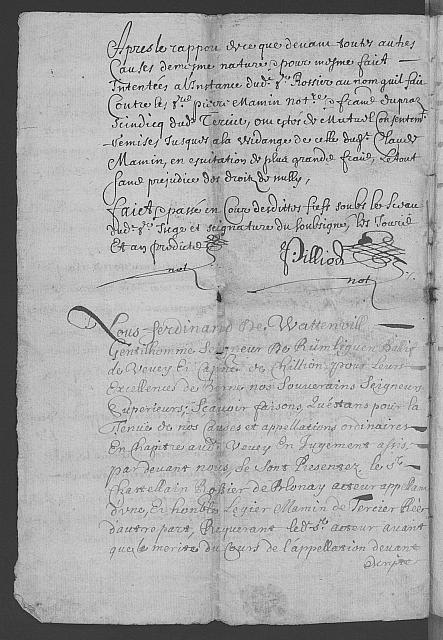 Apres le rappor de ce que devant toutes autres
Causes de mesme nature & pour mesme faict
Intentées a l'Instance dud. Sr Rossier au nom quil faic
Contre les Sre pierre Mamin notre & 
 dud. Tercier, ou estés de Mutuel Consentemt
remises Jusques a la vidange de celle dud. Claude
Mamin, en esvitation de plus grande fraiz, Le tout
sans prejudice des droitz de nully,
faict & passé en Cour desdittes fiefz soubs le Sceau
dud. Sr Juge et seignature du soubsigné, les Jour
Et an predicte
Pilliod
not
not
Lous Ferdinand de Wattenvill
Gentilhomme Seigneur de Rümliguen Balif
de Vevey Et Capne de Chillion, pour Leurs
Excellences de Berne nos Souverains Seigneurs
Superieurs, Sçavoir faisons, Qu'estans pour la
Tenue de nos Causes et appellations ordinaires
En Chapitre aud. Vevey En Jugement assis,
par devant nous, se sont Presentez le Sr
Chastellain Rossier de Blonay acteur appellant
d'une, Et honble Legier Mamin de Tercier Réé
d'autre part, Requerant led. Sr acteur avant
que le merite du Cours de l'appellation devant